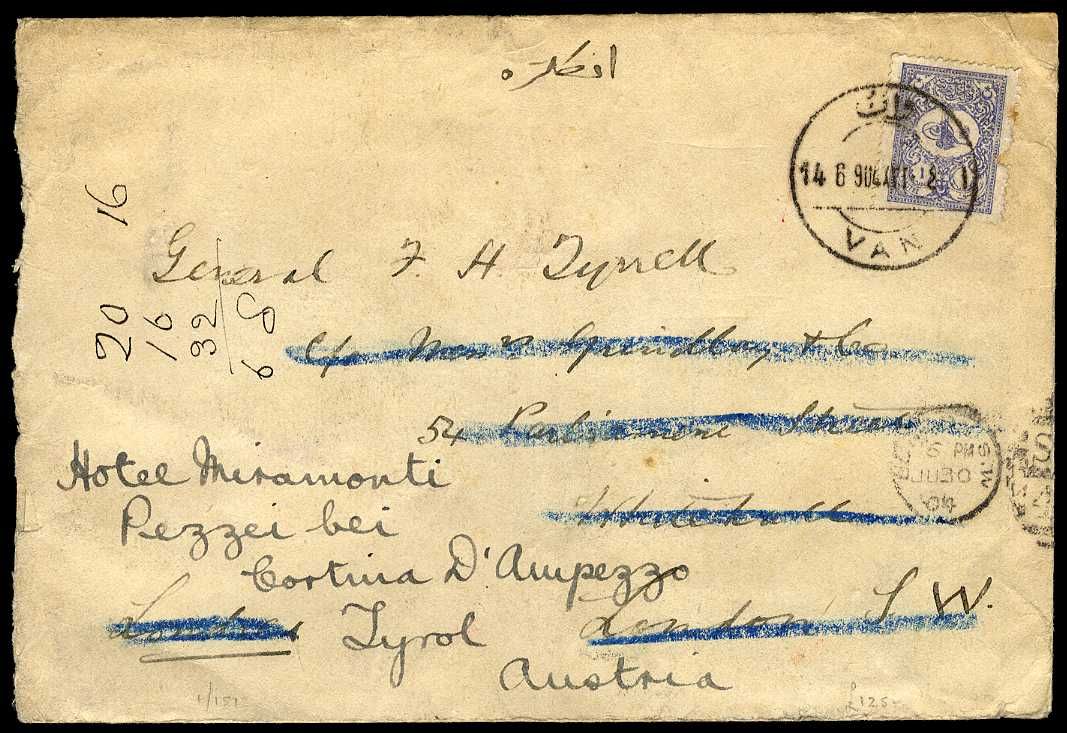 انكلتره
وان
14 6 904
VAN
16
20
16
32
6 8
General F. H. Tyrrell
c/o Messrs Grindlay & Co
54 Parliament Street
6 PM
JU 30
04
S.W
Hotel Miramonti
Pezzei bei
Whitehall
Cortina D'Ampezzo
Londres Tyrol London S. W.
Austria
£125